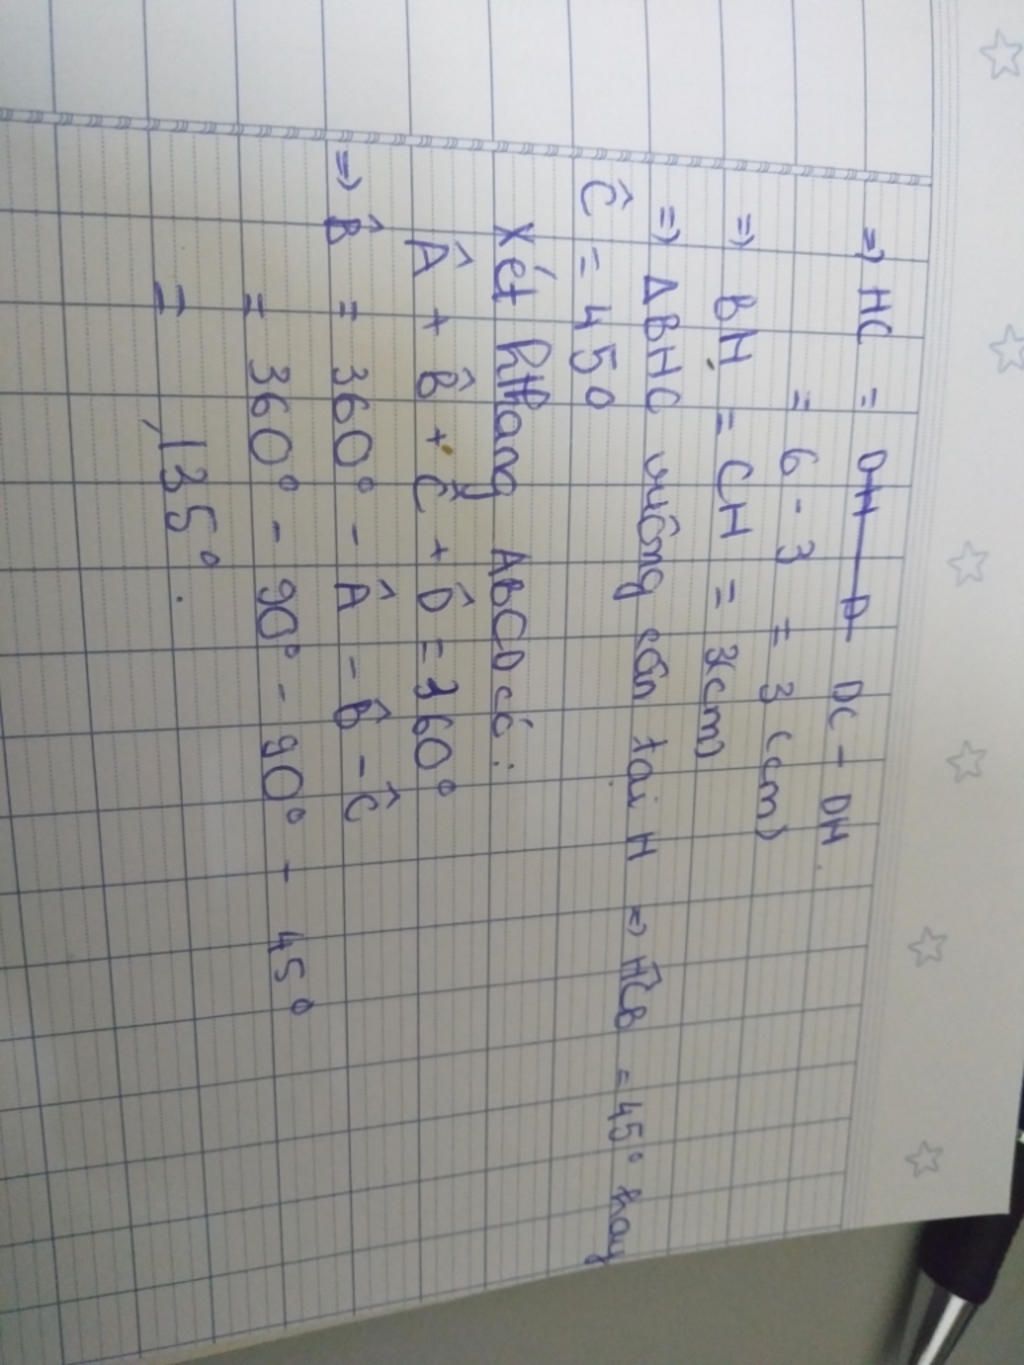 => HC = DC - DH
= 6 - 3 = 3 (cm)
=> BH = CH = 3(cm)
=> ΔBHC vuông cân tại H => HCB = 45° hay
Ĉ = 450
Xét hthang ABCD có:
Â + B̂ + Ĉ + D̂ = 360°
=> B̂ = 360° - Â - B̂ - Ĉ
= 360° - 90° - 90° - 45°
= 135°.